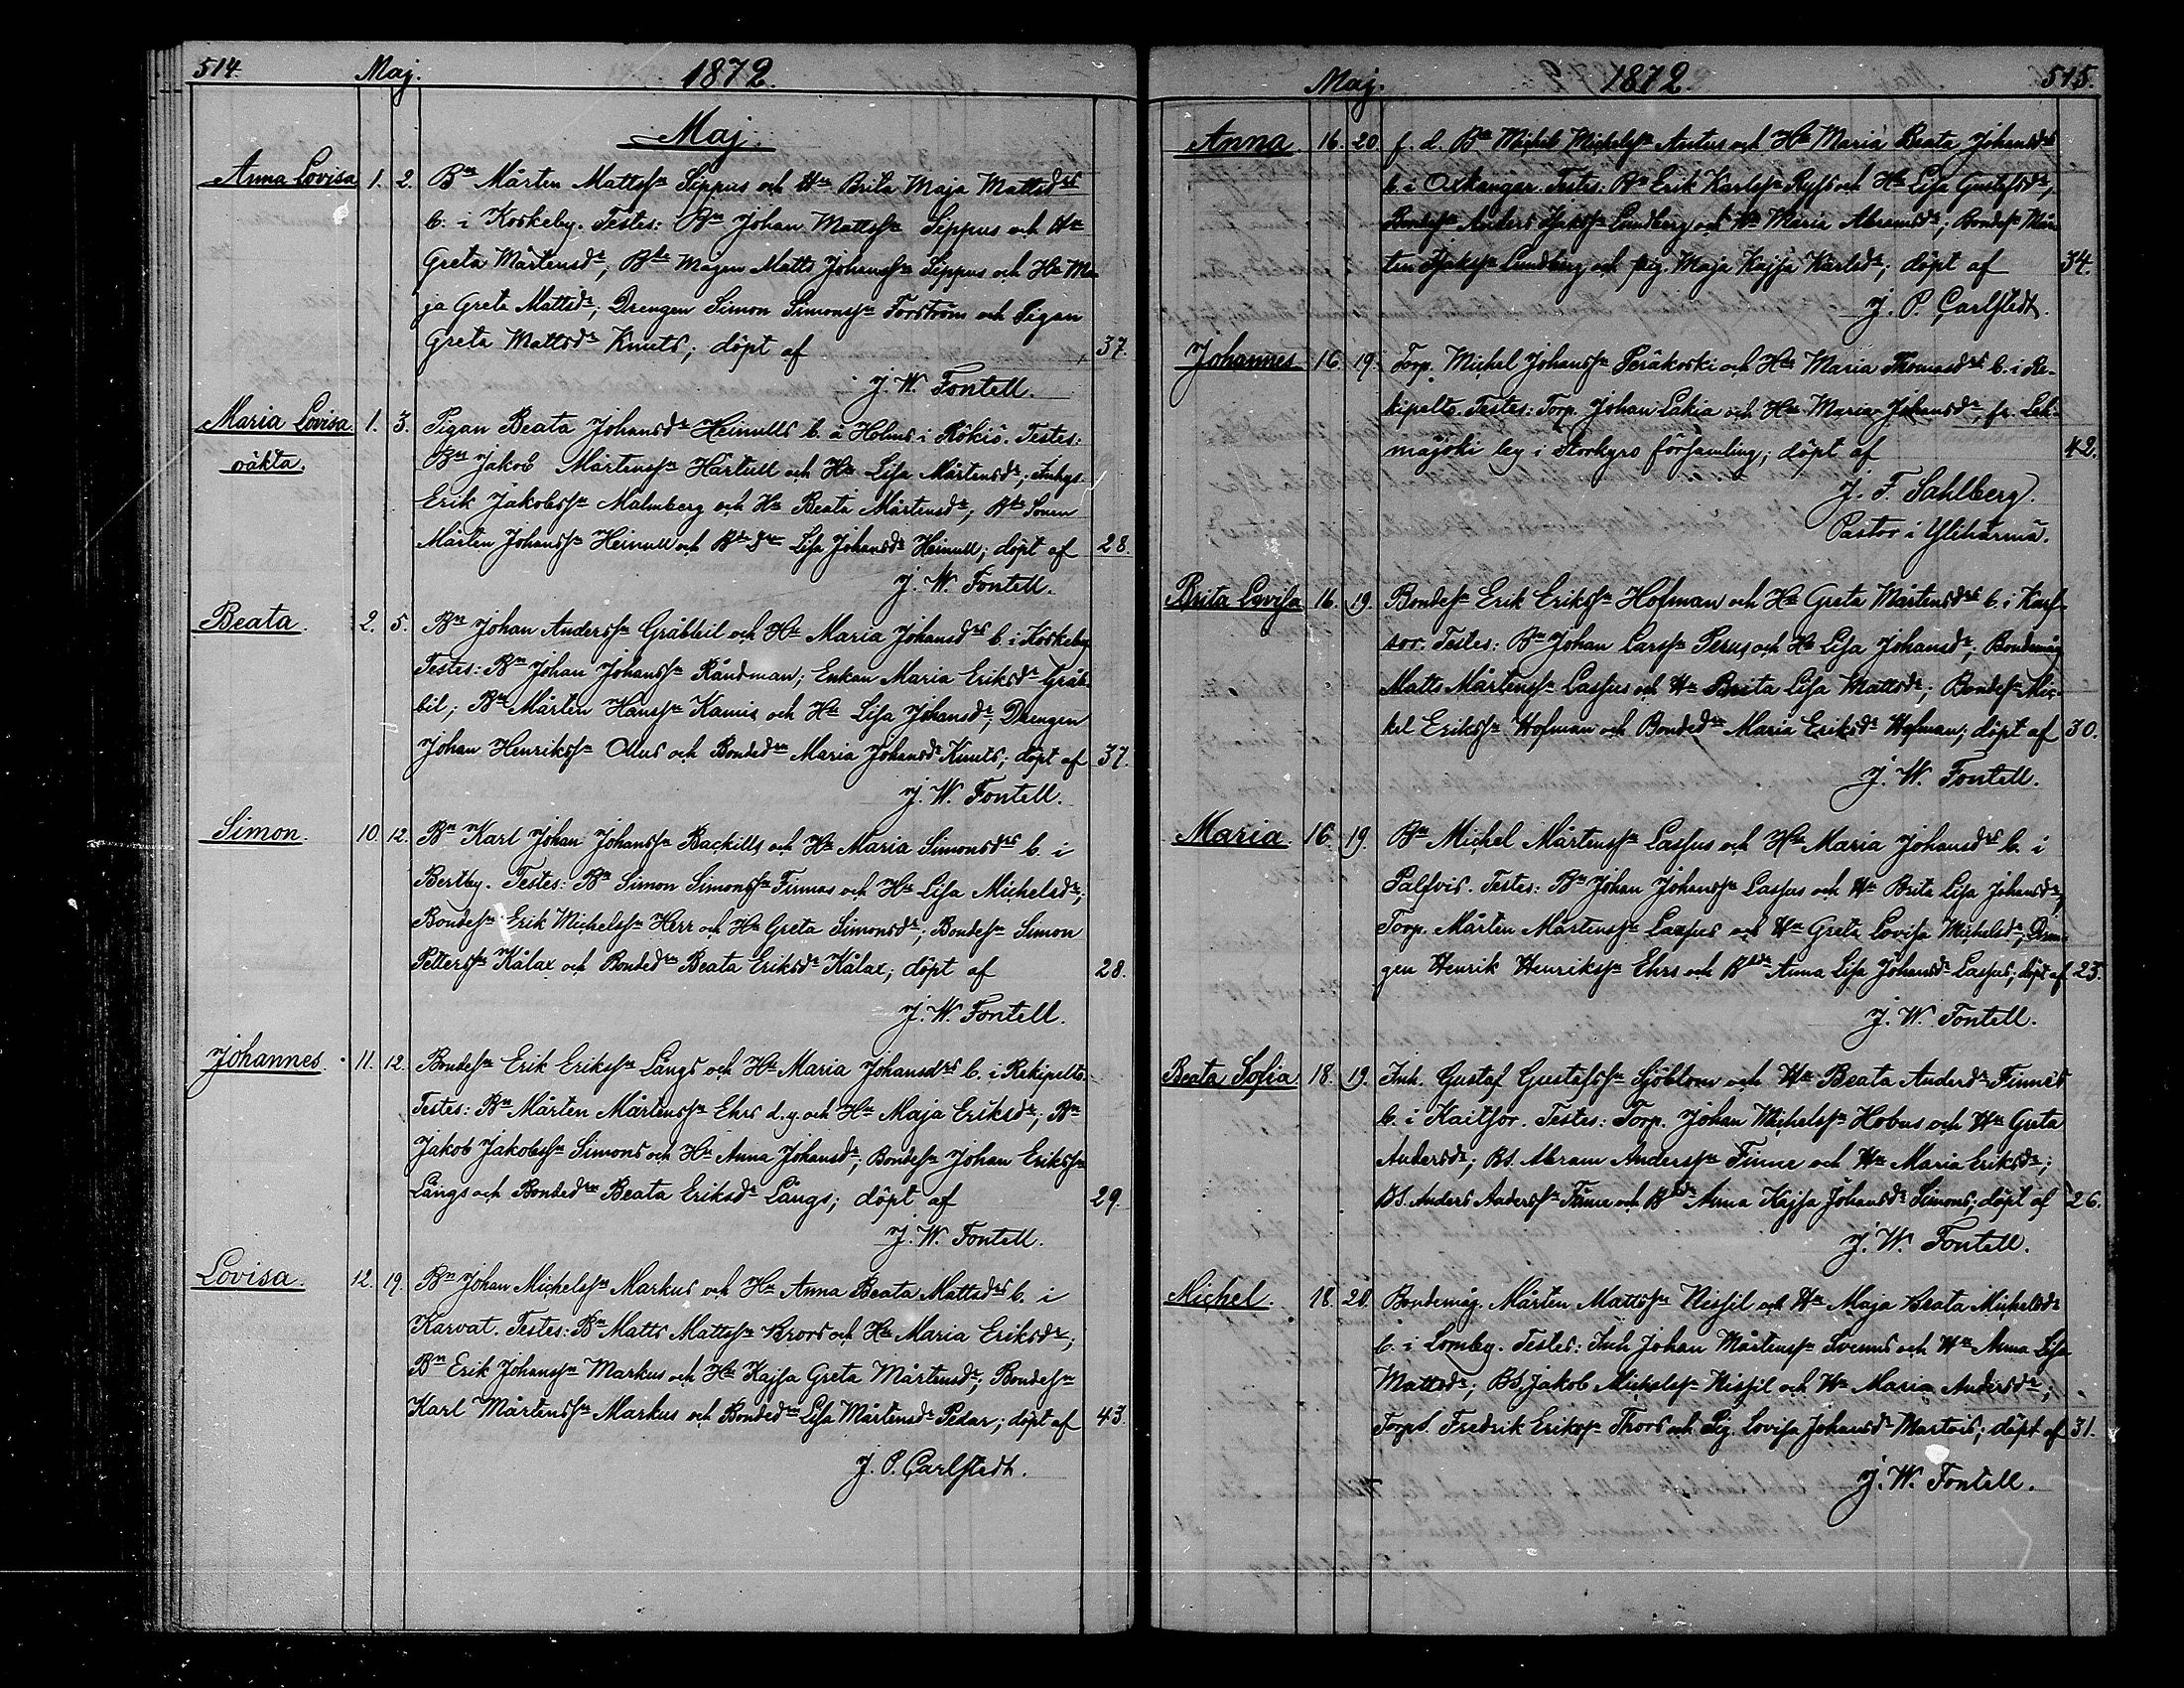 514. Maj. 1872.
Maj.
Anna Lovisa 1. 2. Bn Mårten Mattsn Sippus och Hu Brita Maja Mattsdrs
b. i Koskeby. Testes: Bn Johan Mattsn Sippus och Hu
Greta Mårtensdr; Bde Mågen Matts Johanssn Sippus och Hu Ma
ja Greta Mattsdr; Drengen Simon Simonssn Forström och Pigan
Greta Mattsdr Knuts; döpt af 37.
J. W. Fontell.
Maria Lovisa 1. 3. Pigan Beata Johansdr Heinulls b. å Holms i Rökiö. Testes:
oäkta. Bn Jakob Mårtenssn Härtull och Hu Lisa Mårtensdr; Inhys.
Erik Jakobssn Malmberg och Hu Beata Mårtensdr; Bde Sonen
Mårten Johanssn Heinull och Bdedrn Lisa Johansdr Heinull; döpt af 28.
J. W. Fontell.
Beata. 2. 5. Bn Johan Anderssn Gräbbil och Hu Maria Johansdrs b. i Koskeby
Testes: Bn Johan Johanssn Råndman; Enkan Maria Eriksdr Gräb-
bil; Bn Mårten Hanssn Kamis och Hu Lisa Johansdr; Drengen
Johan Henrikssn Olus och Bondedrn Maria Johansdr Knuts; döpt af 37.
J. W. Fontell.
Simon. 10. 12. Bn Karl Johan Johanssn Backills och Hu Maria Simonsdrs b. i
Bertby. Testes: Bn Simon Simonssn Finnas och Hu Lisa Michelsdr;
Bondesn Erik Michelssn Herr och Hu Greta Simonsdr; Bondesn Simon
Petterssn Kålax och Bondedrn Beata Eriksdr Kålax; döpt af 28.
J. W. Fontell.
Johannes. 11. 12. Bondesn Erik Erikssn Långs och Hu Maria Johansdrs b. i Rekipelto.
Testes: Bn Mårten Mårtenssn Ehrs d. y. och Hu Maja Eriksdr; Bn
Jakob Jakobssn Simons och Hu Anna Johansdr; Bondesn Johan Erikssn
Långs och Bondedrn Beata Eriksdr Långs; döpt af 29.
J. W. Fontell.
Lovisa. 12. 19. Bn Johan Michelssn Markus och Hu Anna Beata Mattsdrs b. i
Karvat. Testes: Bn Matts Mattssn Brors och Hu Maria Eriksdr;
Bn Erik Johanssn Markus och Hu Kajsa Greta Mårtensdr; Bondesn
Karl Mårtenssn Markus och Bondedrn Lisa Mårtensdr Pedar; döpt af 43.
J. P. Carlstedt.
Maj. 1872. 515.
Anna 16. 20. f. d. Bn Michel Michelssn Antus och Hu Maria Beata Johansdrs
b. i Oxkangar. Testes: Bn Erik Karlssn Ryss och Hu Lisa Gustafsdr;
Bondesn Anders Isakssn Lundberg och Hu Maria Abramsdr; bondesn Mår-
ten Isakssn Lundberg och pig. Maja Kajsa Karlsdr; döpt af 34.
J. P. Carlstedt.
Johannes 16. 19. Torp. Michel Johanssn Peräkoski och Hu Maria Thomasdrs b. i Re-
kipelto. Testes: Torp. Johan Lakia och Hu Maria Johansdr, fr. Leh-
mäjoki by i Storkyro församling; döpt af 42.
J. F. Sahlberg.
Pastor i Ylihärmä.
Brita Lovisa 16. 19. Bondesn Erik Erikssn Hofman och Hu Greta Mårtensdrs b. i Kars-
sor. Testes: Bn Johan Larssn Perus och Hu Lisa Johansdr; Bondemåg
Matts Mårtenssn Lassus och Hu Brita Lisa Mattsdr; Bondesn Mic-
kel Erikssn Hofman och Bondedrn Maria Eriksdr Hofman; döpt af 30.
J. W. Fontell.
Maria. 16. 19. Bn Michel Mårtenssn Lassus och Hu Maria Johansdrs b. i
Palfvis. Testes: Bn Johan Johanssn Lassus och Hu Brita Lisa Johansdr;
Torp. Mårten Mårtenssn Lassus och Hu Greta Lovisa Michelsdr; Dren-
gen Henrik Henrikssn Ehrs och Bdedr Anna Lisa Johansdr Lassus; döpt af 25.
J. W. Fontell.
Beata Sofia 18. 19. Inh. Gustaf Gustafssn Sjöblom och Hu Beata Andersdr Finnes
b. i Kaitsor. Testes: Torp. Johan Michelssn Hobus och Hu Greta
Andersdr; BS. Abram Anderssn Finne och Hu Maria Eriksdr;
BS. Anders Anderssn Finne och Bdedr Anna Kajsa Johansdr Simons; döpt af 26.
J. W. Fontell.
Michel. 18. 20. Bondemåg. Mårten Mattssn Nissil och Hu Maja Beata Michelsdr
b. i Lomby. Testes: Inh Johan Mårtenssn Svenns och Hu Anna Lisa
Mattsdr; BS. Jakob Michelssn Nissil och Hu Maria Andersdr;
TorpS. Fredrik Erikssn Thors och Pig. Lovisa Johansdr Martois; döpt af 31.
J. W. Fontell.